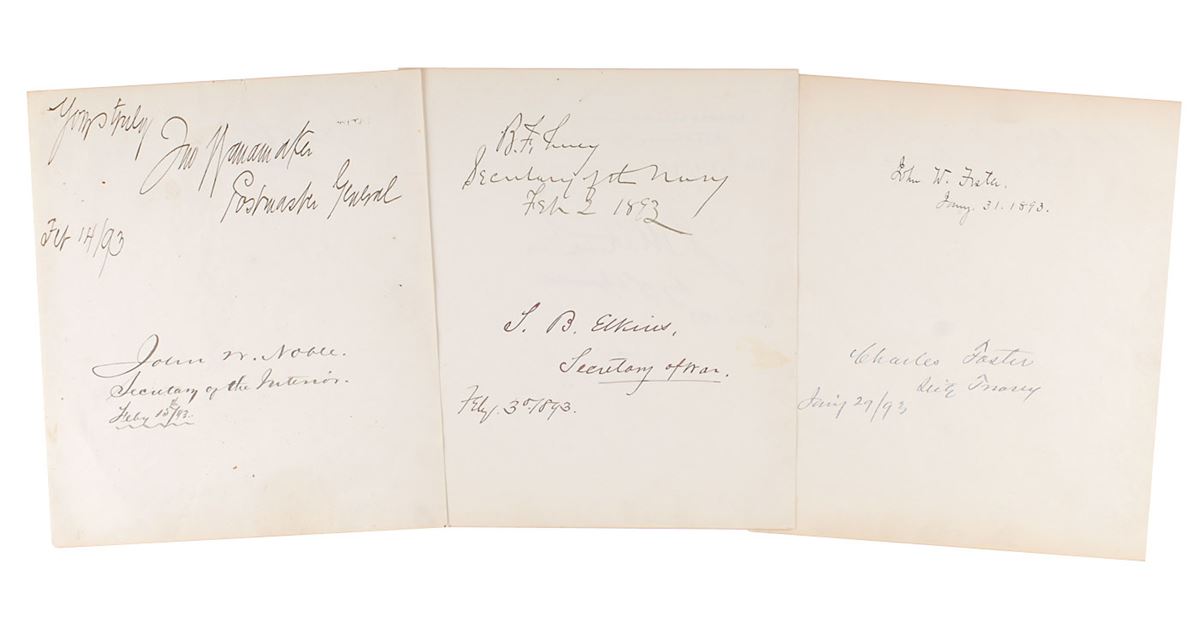 Yours truly
Jno Wanamaker
Postmaster General
Feb 14/93
John W. Noble.
Secretary of the Interior.
Feby 15th/93.
B. F. Tracy
Secretary of the Navy
Feb 2 1893
S. B. Elkins.
Secretary of War.
Feby. 3d. 1893.
John W. Foster.
Jany. 31. 1893.
Charles Foster
Treasy
Jany 29/93